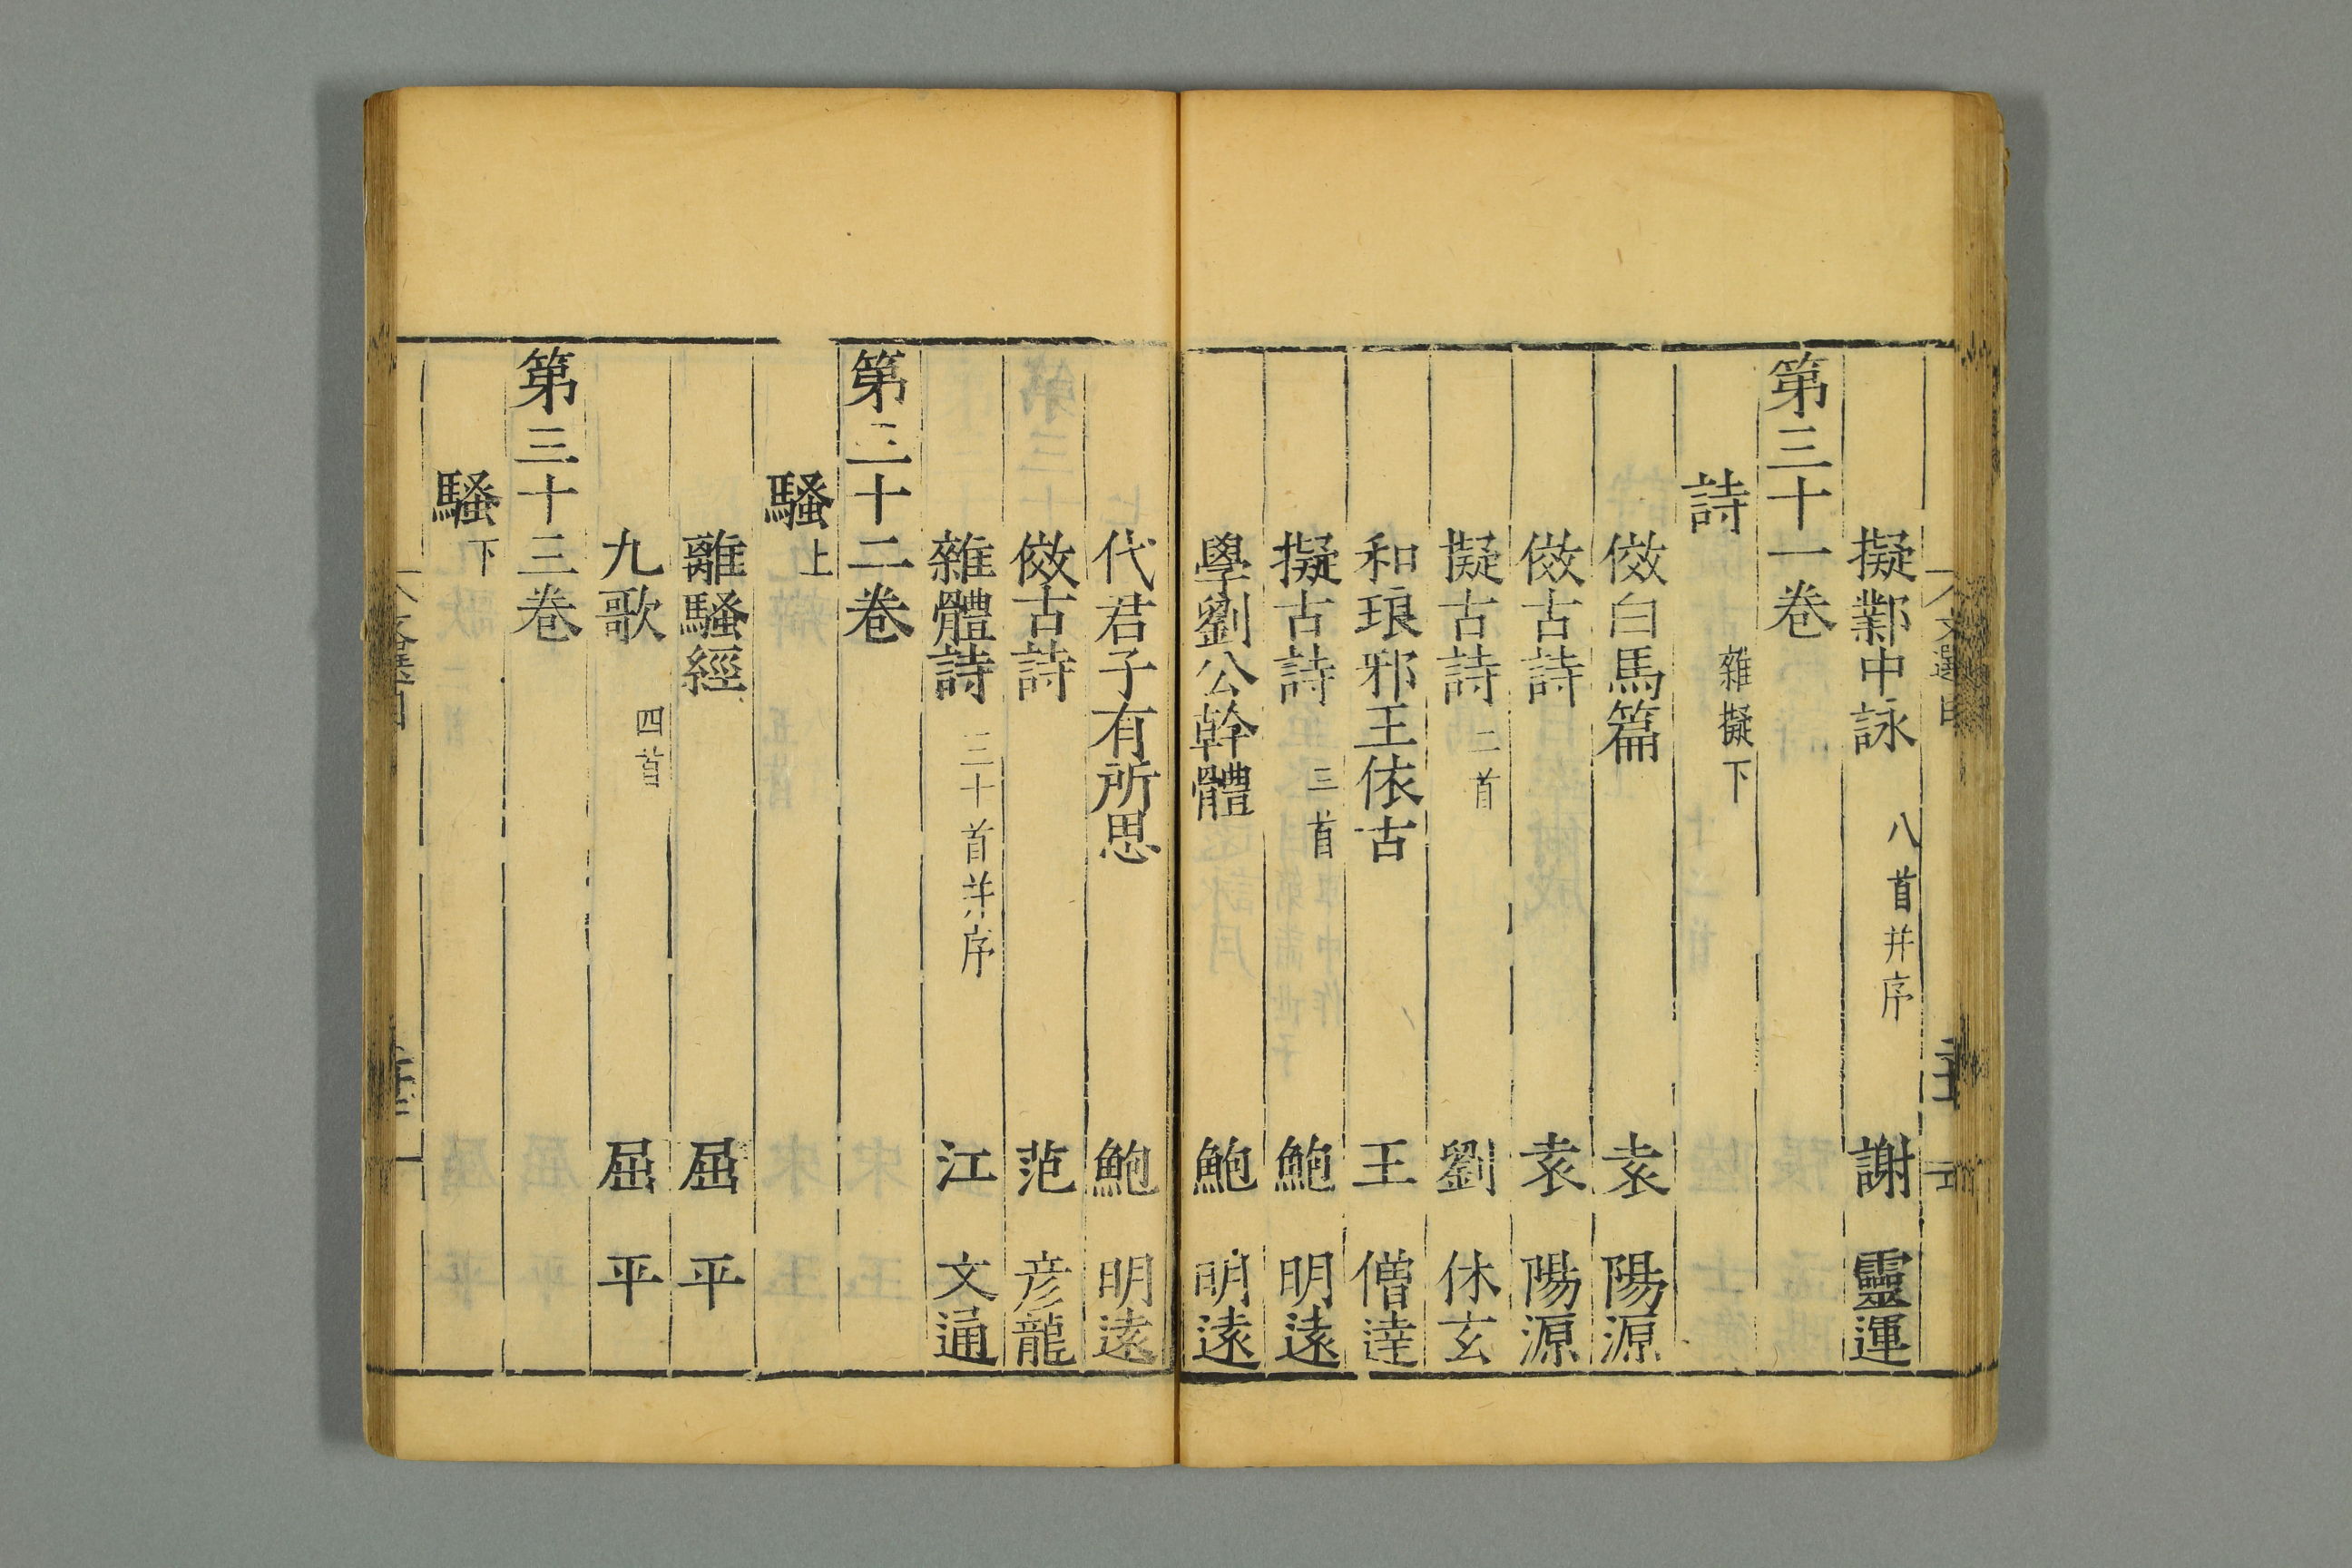 擬鄴中詠 八首并序 謝靈運
第三十一卷
詩 雜擬下
倣白馬篇 袁陽源
倣古詩 袁陽源
擬古詩 二首 劉休玄
和琅邪王依古 王僧達
擬古詩 三首 鮑明遠
學劉公幹體 鮑明遠
代君子有所思 鮑明遠
倣古詩 范彦龍
雜體詩 三十首并序 江文通
第三十二卷
騷上
離騷經 屈平
九歌 四首 屈平
第三十三卷
騷下